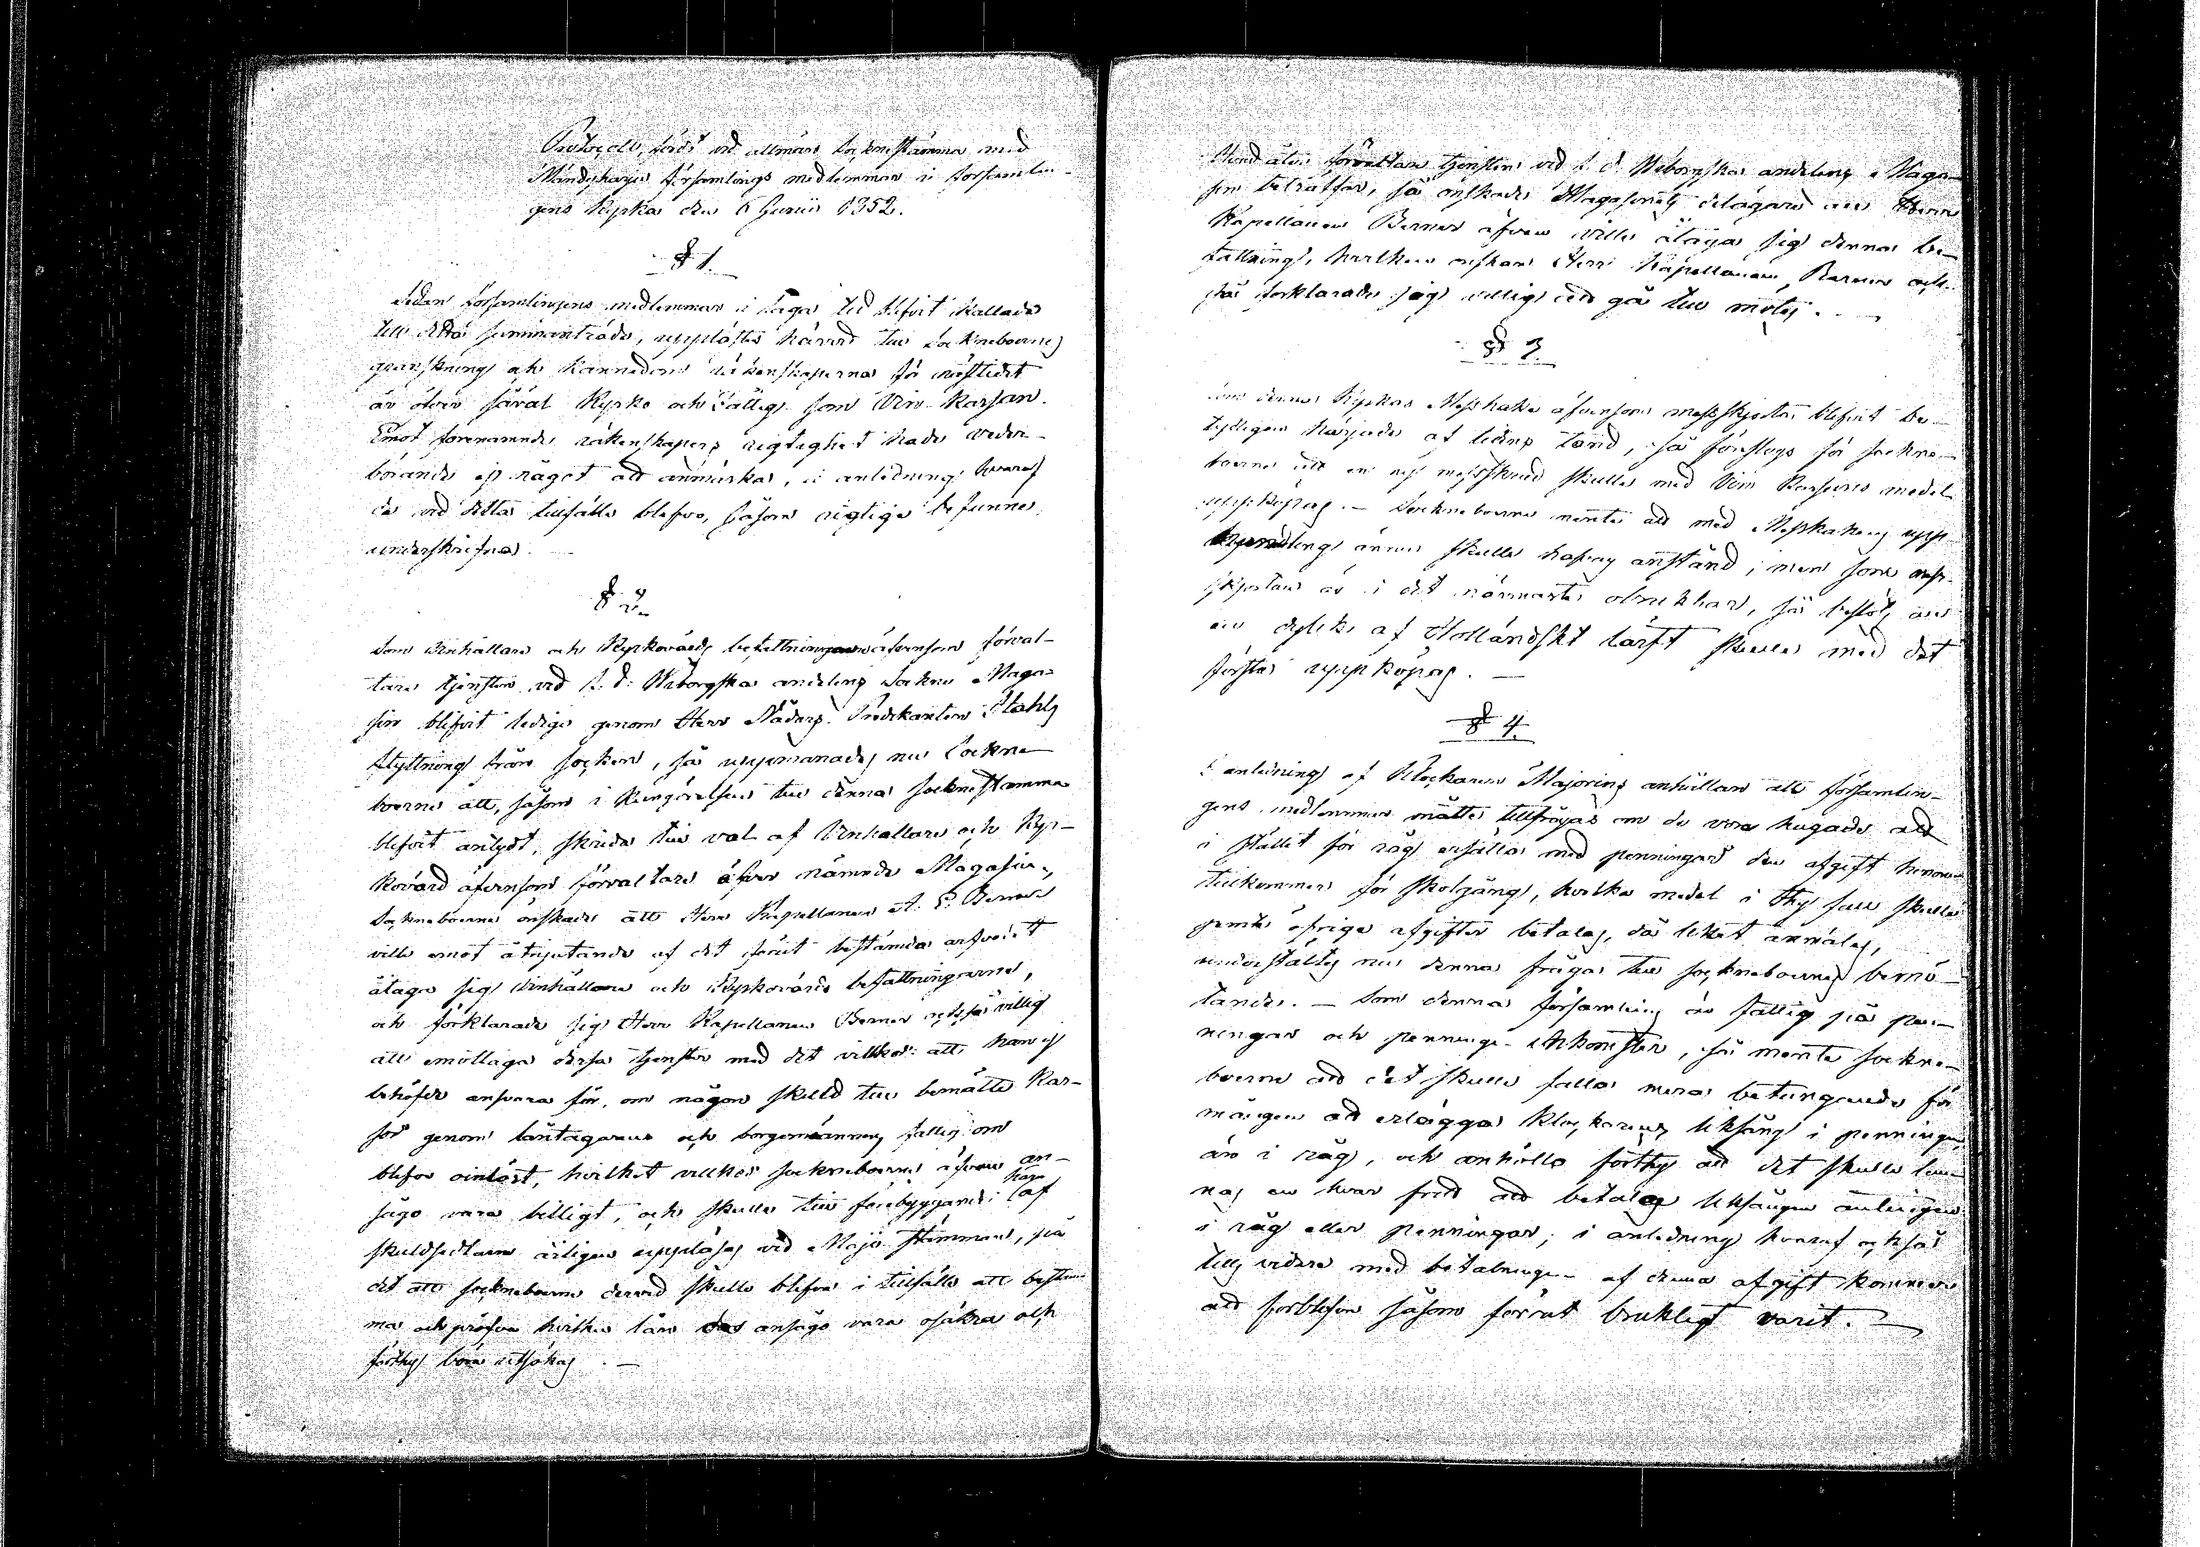 Protocoll, fördt vid allmän Socknestämma med
Mändyharju församlings medlemmar i församlin-
gens Kyrka den 6 Junii 1852.
§ 1.
Sedan församlingens medlemmar i laga tid blifvit kallade
till detta sammanträde, upplästes härvid till Sockneboernes
granskning och kännedom räkenskaperna för nästledit
år öfver såväl Kyrko och Fattig- som Vin-Kassan.
Emot förenämnde räkenskapers rigtighet hade veder-
börande ej något att anmärka, i anledning hvaraf
de vid detta tillfälle blefvo, såsom rigtige befunne,
underskrifna.
§ 2.
Som Vinhållare och Kyrkovärds befattningarne äfvensom förval-
tare tjensten vid s. d. Wiborgska andelens Sockne Maga-
sin blifvit ledige genom Herr Nådårs Predikanten Stahls
flyttning från socken, så uppmanades nu Sockne-
boerne att, såsom i Kungörelsen till denna socknestämma
blifvit antydt, skrida till val af Vinhållare och Kyr-
kovärd äfvensom förvaltare öfver nämnde Magasin.
Sockneboerne önskade att Herr Kapellanen A. E. Berner
ville emot åtnjutande af det förut bestämda arfvodet
åtaga sig Vinhållare och Kyrkovärds befattningarne,
och förklarade sig Herr Kapellanen Berner också villig
att emottaga dessa tjenster med det villkor: att han ej
behöfver ansvara för, om någon skuld till bemälte Kas-
sor genom låntagarens och borgesmannens fattigdom
blefve oinlöst, hvilket villkor sockneboerne äfven an-
sågo vara billigt, och skulle till förebyggande häraf
skuldsedlarne årligen uppläsas vid Majo stämman, på
det att sockneboerne dervid skulle blifva i tillfälle att bestäm-
ma och pröfva hvilka lån de ansågo vara osäkra och
förthy böra utsökas. —
Hvad åter förvaltare tjensten vid s. d. Wiborgska andelens Maga-
sin beträffar, så önskade Magasinets delägare att Herr
Kapellanen Berner äfven ville åtaga sig denna be-
fattning, hvilken önskan Herr Kapellanen Berner och-
så förklarade sig villig att gå till mötes. —
§ 3.
Som denna Kyrkas Messhake äfvensom messskjorta blifvit be-
tydligen härjade af tidens tand, så föreslogs för sockne-
boerne att en ny messskrud skulle med Vin Kassans medel
uppköpas. — Sockneboerne mente att med Messhakens upp-
handling ännu skulle hafvas anstånd; men som mess-
skjortan är i det närmaste obrukbar, så beslöts att
en dylik af Holländskt lärft skulle med det
första uppköpas. —
§ 4.
I anledning af Klockaren Majorins anhållan att församlin-
gens medlemmar måtte tillfrågas om de vore hugade att
i stället för råg ersätta med penningar den afgift honom
tillkommer för skolgång, hvilka medel i thy fall skulle
jemte öfriga afgifter betalas, då liket anmäles,
underställtes nu denna fråga till sockneboernes bemö-
tande. — Som denna församling är fattig på pen-
ningar och penninge-inkomster, så mente sockne-
boerne att det skulle falla mera betungande för
mängen att erlägga klockarens liksång i penningar
än i råg, och anhöllo förthy att det skulle lem-
nas en hvar fritt att betala liksången antingen
i råg eller penningar; i anledning hvaraf också
tills vidare med betalningen af denna afgift kommer
att förblifva såsom förut brukligt varit. —